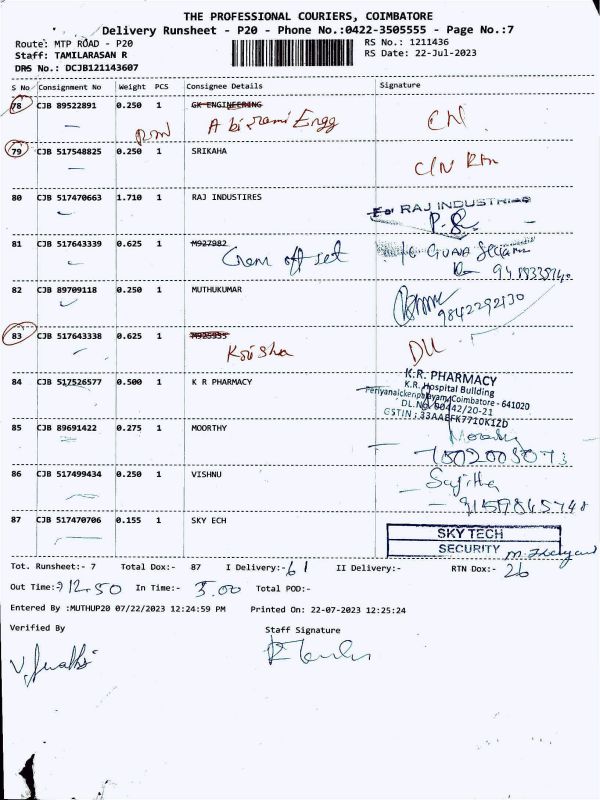 THE PROFESSIONAL COURIERS, COIMBATORE
Delivery Runsheet - P20 - Phone No.:0422-3505555 - Page No.:7
Route: MTP ROAD - P20 RS No.: 1211436
Staff: TAMILARASAN R RS Date: 22-Jul-2023
DRS No.: DCJB121143607
S No Consignment No Weight PCS Consignee Details Signature
78 CJB 89522891 0.250 1 GK ENGINEERING
Abirami Engg
79 CJB 517548825 0.250 1 SRIKAHA
80 CJB 517470663 1.710 1 RAJ INDUSTIRES For RAJ INDUSTRIES
81 CJB 517643339 0.625 1 M927982
Gem off set
82 CJB 89709118 0.250 1 MUTHUKUMAR
9842292130
83 CJB 517643338 0.625 1
Krisha DLL
84 CJB 517526577 0.500 1 K R PHARMACY K.R. PHARMACY
K.R. Hospital Building
Periyanaickenpalayam, Coimbatore - 641020
DL.No. 00442/20-21
GSTIN : 33AAEFK7710K1ZD
85 CJB 89691422 0.275 1 MOORTHY
86 CJB 517499434 0.250 1 VISHNU Sajitha
87 CJB 517470706 0.155 1 SKY ECH SKY TECH
SECURITY
Tot. Runsheet:- 7 Total Dox:- 87 I Delivery:- 61 II Delivery:- RTN Dox:- 26
Out Time: 12.50 In Time:- 5.00 Total POD:-
Entered By :MUTHUP20 07/22/2023 12:24:59 PM Printed On: 22-07-2023 12:25:24
Verified By Staff Signature